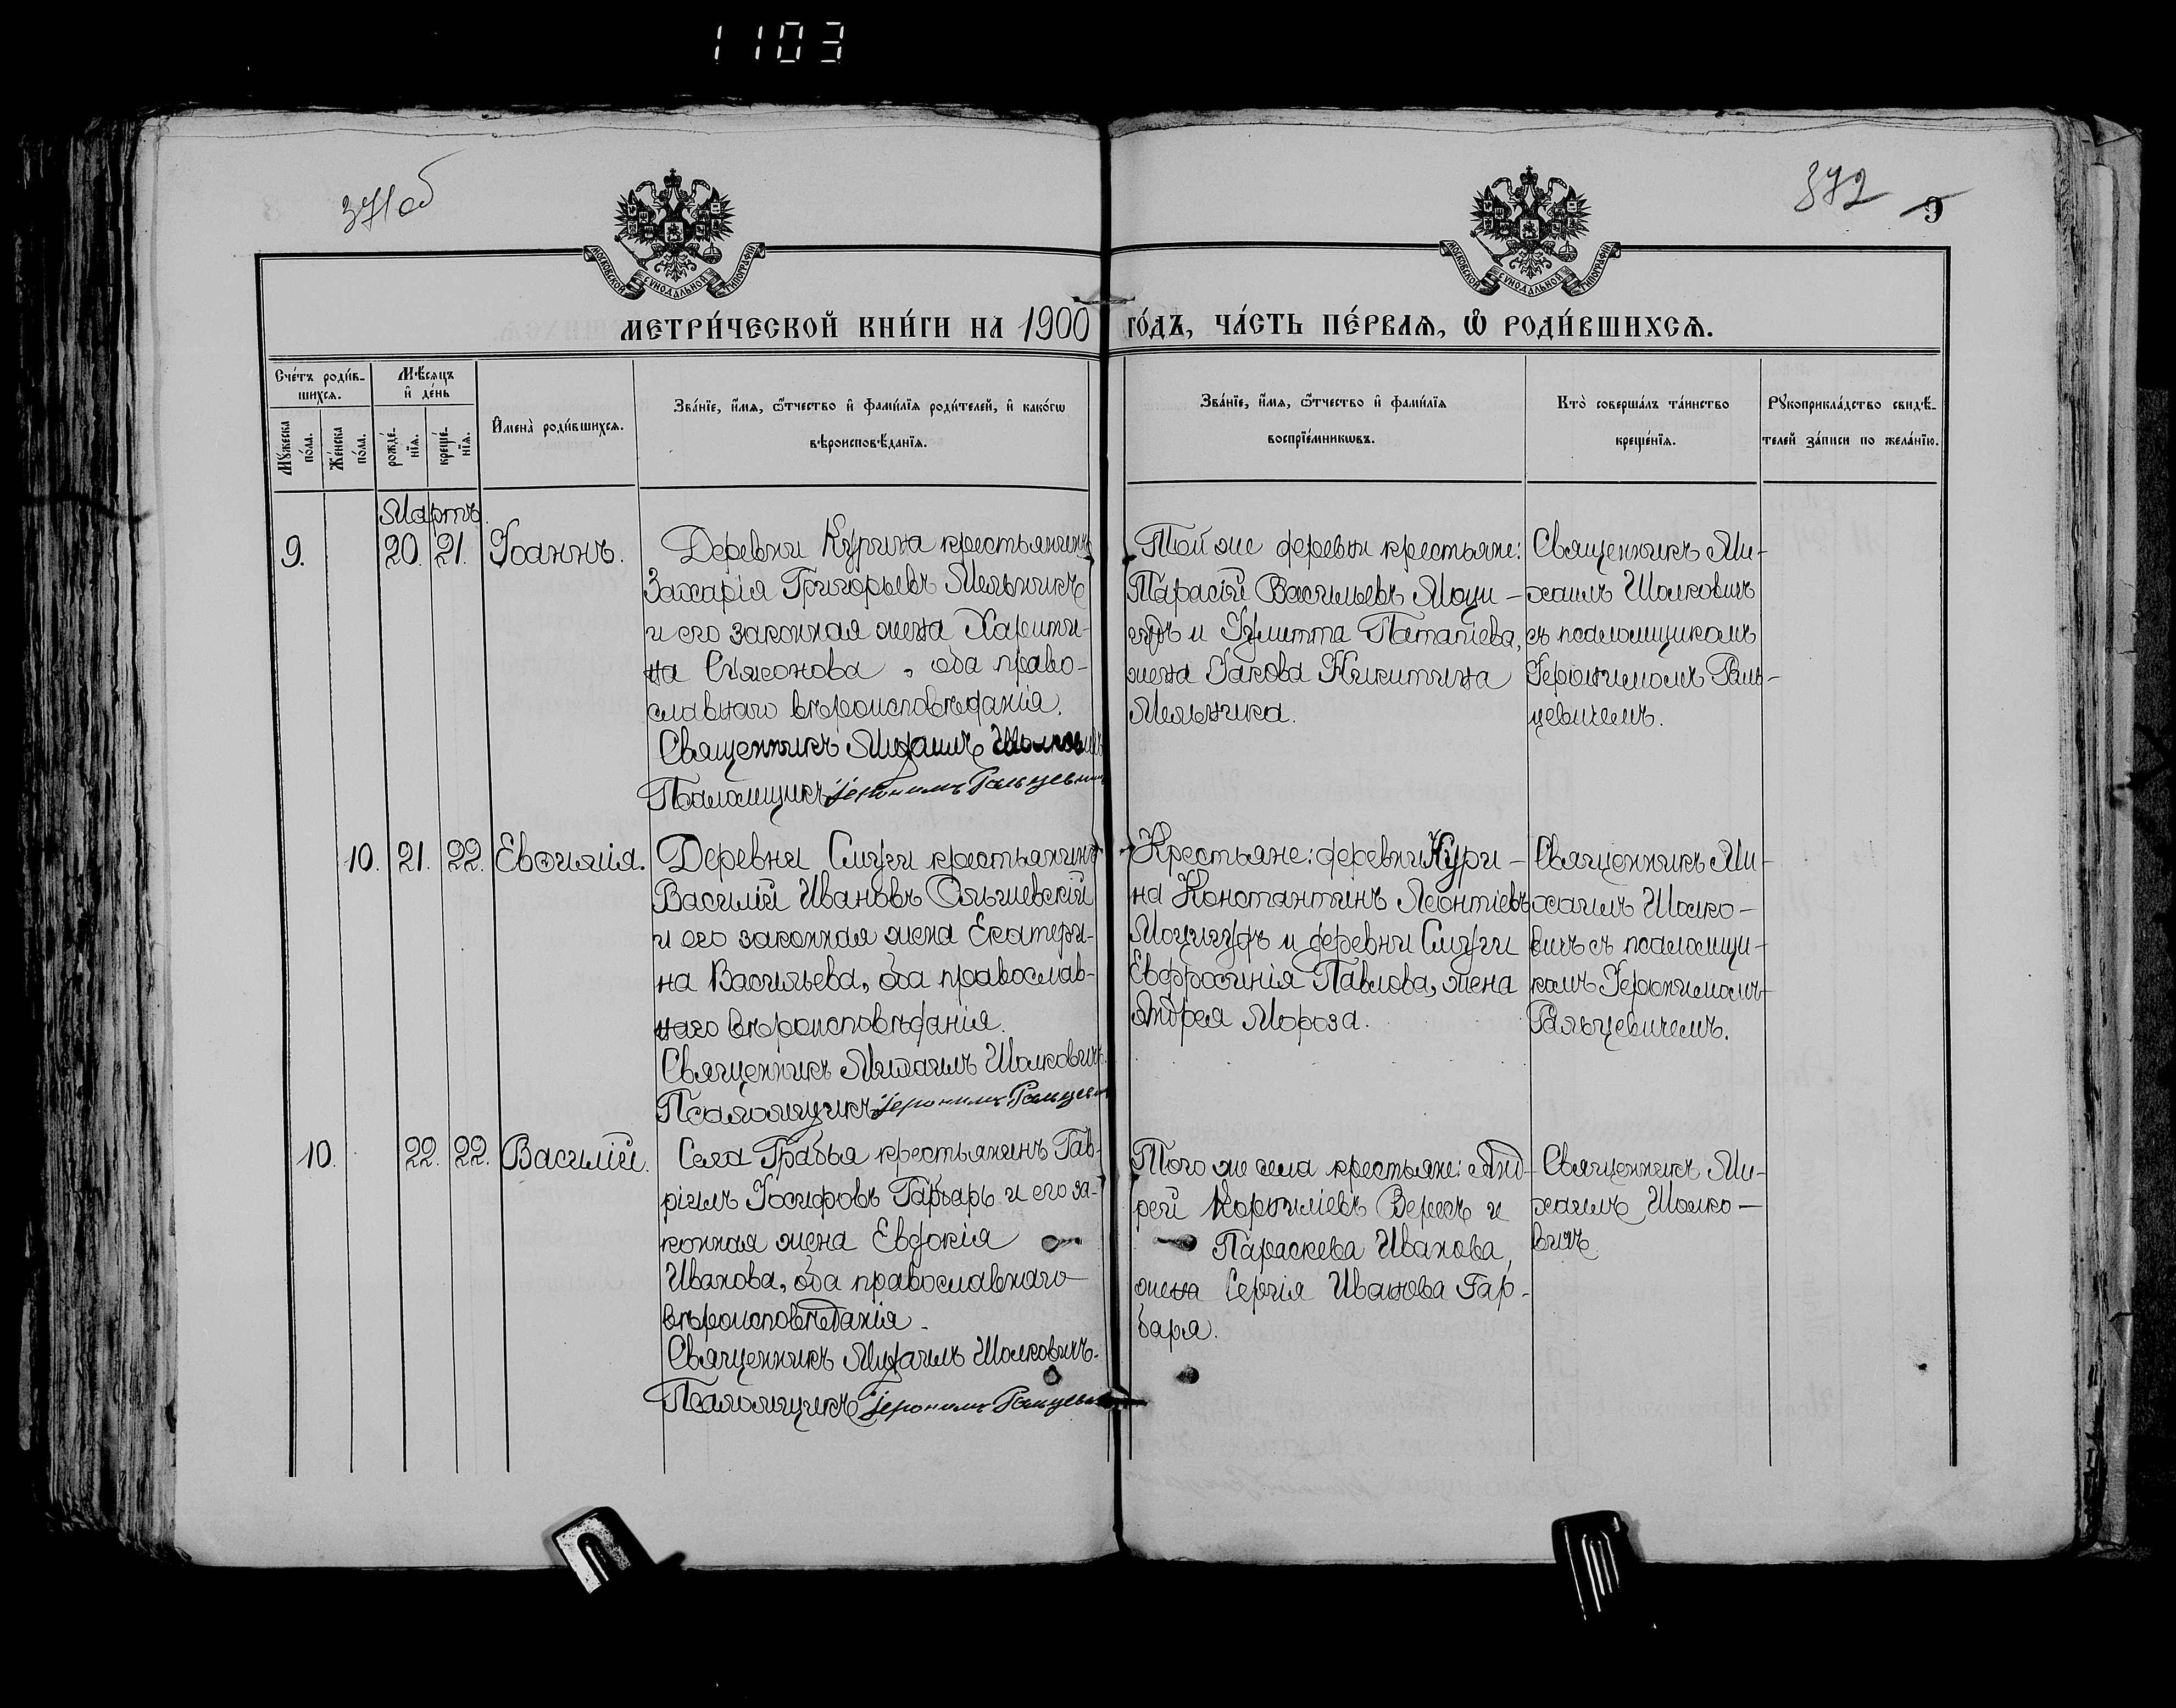 1103
371об
372 9
МОСКОВСКОЙ СѴНОДАЛЬНОЙ ТИПОГРАФІИ
МОСКОВСКОЙ СѴНОДАЛЬНОЙ ТИПОГРАФІИ
МЕТРИ́ЧЕСКОЙ КНИ́ГИ НА 1900 ГО́ДЪ, ЧА́СТЬ ПЕ́РВАѦ, Ѽ РОДИ́ВШИХСѦ.
Сче́тъ роди́в-
шихсѧ.
Мꙋ́жеска по́ла.
Же́нска по́ла.
Мѣ́сѧцъ
и҆ де́нь
рожде́-
нїѧ.
креще́-
нїѧ.
И҆мена̀ роди́вшихсѧ.
Зва́нїе, и҆́мѧ, ѻ҆́тчество и҆ фами́лїѧ роди́телей, и҆ како́гѡ
вѣроисповѣ́данїѧ.
Зва́нїе, и҆́мѧ, ѻ҆́тчество и҆ фами́лїѧ
воспрїе́мникѡвъ.
Кто̀ соверша́лъ та́инство
креще́нїѧ.
Рꙋкоприкла́дство свидѣ́-
телей за́писи по жела́нїю.
Мартъ.
9. 20. 21. Іоаннъ.
Деревни Курина крестьянинъ
Захарія Григорьевъ Мельникъ
и его законная жена Харити-
на Симонова, оба право-
славнаго вѣроисповѣданія.
Священникъ Михаилъ Шолковичъ
Псаломщикъ Іеронимъ Гальцевичъ
Той же деревни крестьяне:
Тарасій Васильевъ Моци-
и Іулитта Патапіева,
жена Іакова Никитина
Мельника.
Священникъ Ми-
хаилъ Шолковичъ
съ псаломщикомъ
Іеронимомъ Галь-
цевичемъ.
10. 21. 22. Евѳимія.
Деревни Смуги крестьянинъ
Василій Ивановъ Ольшевскій
и его законная жена Екатери-
на Васильева, оба православ-
наго вѣроисповѣданія.
Священникъ Михаилъ Шолковичъ
Псаломщикъ Іеронимъ Гальцевичъ
Крестьяне: деревни Кури-
на Константинъ Леонтіевъ
и деревни Смуги
Евфросинія Павлова, жена
Андрея Мороза.
Священникъ Ми-
хаилъ Шолко-
вичъ съ псаломщи-
комъ Іеронимомъ
Гальцевичемъ.
10. 22. 22. Василій.
Села Грабья крестьянинъ Гав-
ріилъ Іосифовъ Гарбарь и его за-
конная жена Евдокія
Иванова, оба православнаго
вѣроисповѣданія.
Священникъ Михаилъ Шолковичъ.
Псаломщикъ Іеронимъ Гальцевичъ
Того же села крестьяне: Анд-
рей Корниліевъ Вересъ и
Параскева Иванова,
жена Сергія Иванова Гар-
баря.
Священникъ Ми-
хаилъ Шолко-
вичъ